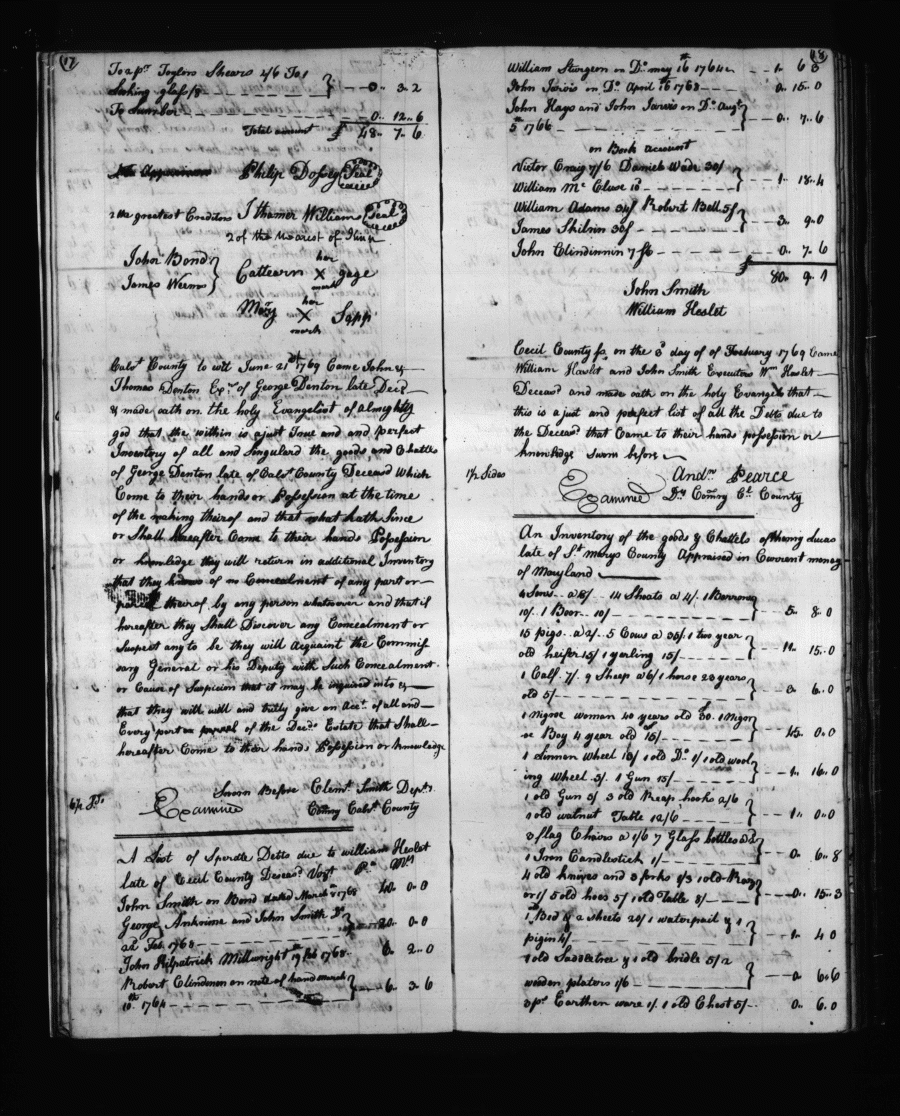 17
To a pr Taylors Shears 2/6 To 1
Looking glass /8 0 .. 3 .. 2
To Lumber 0 .. 12 .. 6
Total amount £ 48 .. 7 .. 6
Philip Dossey Seal
2 the greatest Creditors Ithamer William Seal
2 of the Nearest of Kin
John Bond } Cattearn her X mark gage
James Weems
Mary her X mark Sapp
Calvt County to wit June 21st 1769 Came John &
Thomas Denton Exrs of George Denton late Decd
& made oath on the holy Evangelist of almighty
god that the within is a just True and and perfect
Inventory of all and Singulard the goods and Chattles
of George Denton late of Calvt County Deceasd Which
Come to their hands or Possession at the time
of the making theirof and that what hath Since
or Shall hereafter Come to their hands Possession
or knowledge they will return in additional Inventory
that they knows of no Concealment of any part or
parcel theirof by any person whatsoever and that if
hereafter they Shall Discover any Concealment or
Suspect any to be they will acquaint the Commiss
sary General or his Deputy with Such Concealment
or Cause of Suspicion that it may be inquired into &
that they will well and truly give an Acct. of all and
Every part or parcel of the Decds Estate that Shall
hereafter Come to their hands Possession or knowledge
Sworn Before Clemt. Smith Depty
Examined Comry Calvt County
A List of Sperate Debts due to william Heslet
late of Cecil County Deceasd Vizt
John Smith on Bond dated March 1768 10 .. 0 .. 0
George Ankrime and John Smith Do
22d Feb. 1768 20 .. 0 .. 0
John Kilpatrick Millwright 19 Feb 1768 0 .. 2 .. 0
Robert Clindmen on note of hand march
10th 1764 6 .. 3 .. 6
18
William Sturgeon on Do may 16th 1764 1 .. 6 3
John Jarvis on Do April 16th 1768 0 .. 15 .. 0
John Hays and John Jarvis on Do Augt
5th 1766 0 .. 7 .. 6
on Book account
Victor Craig 7/6 Daniel Wade 30/
William Mc Cluse 10 1 .. 18 .. 4
William Adams 34/ Robert Bell 5/
James Shilrin 30/ 3 .. 9 .. 0
John Clindinnin 7/6 0 .. 7 .. 6
£ 80 .. 9 .. 1
John Smith
William Heslet
Cecil County ss. on the 3d day of of February 1769 Came
William Haslet and John Smith Executors Wm Haslet
Deceasd and made oath on the holy Evangels that
this is a just and perfect list of all the Debts due to
the Deceasd that Came to their hands possession or
knowledge Sworn before
1½ Sides Andw Pearce
Examined Dy Comry Cl County
An Inventory of the goods & Chattels of
late of St marys County Appraised in Current money
of Maryland
4 Sows a 8/ 14 Shoats a 4/. 1 Barrow
10/. 1 Boor 10/ 5 .. 8 .. 0
15 pigs a 2/. 5 Cows a 35/ 1 two year
old heifer 15/ 1 yerling 15/ 11 .. 15 .. 0
1 Calf 7/. 9 Sheep a 6/ 1 horse 23 years
old 5/ 3 .. 6 .. 0
1 Nigroe woman 40 years old 30. 1 Nigro
oe Boy 4 year old 15/ 45 .. 0 .. 0
1 Linnen Wheel 18/ 1 old Do 1/ 1 old wool
ing Wheel 3/. 1 Gun 15/ 1 .. 16 .. 0
1 old Gun 5/ 3 old Reep hooks 2/6
1 old walnut Table 12/6 1 .. 0 .. 0
3 flag Chairs a 1/6 7 Glass bottles a 2d
1 Iron Candlestick 1/ 0 .. 6 .. 8
4 old knives and 3 forks 1/3 1 old Raz
or 1/ 5 old hoes 5/ 1 old Table 8/ 0 .. 15 .. 3
1 Bed & 2 sheets 20/ 1 waterpail & 1
pigin 4/ 1 .. 4 .. 0
1 old Saddletree & 1 old bridle 5/ 2
wooden platers 1/6 0 .. 6 .. 6
3 pt Earthen ware 1/. 1 old Chest 5/ 0 .. 6 .. 0